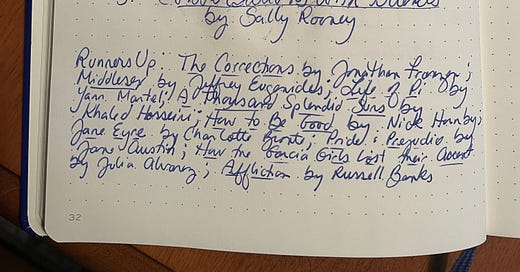 5. Conversations With Friends
by Sally Rooney
Runners Up: The Corrections by Jonathan Franzen;
Middlesex by Jeffrey Eugenides; Life of Pi by
Yann Martel; A Thousand Splendid Suns by
Khaled Hosseini; How to Be Good by Nick Hornby;
Jane Eyre by Charlotte Bronte; Pride & Prejudice by
Jane Austin; How the Garcia Girls Lost their Accent
by Julia Alvarez; Affliction by Russell Banks
32